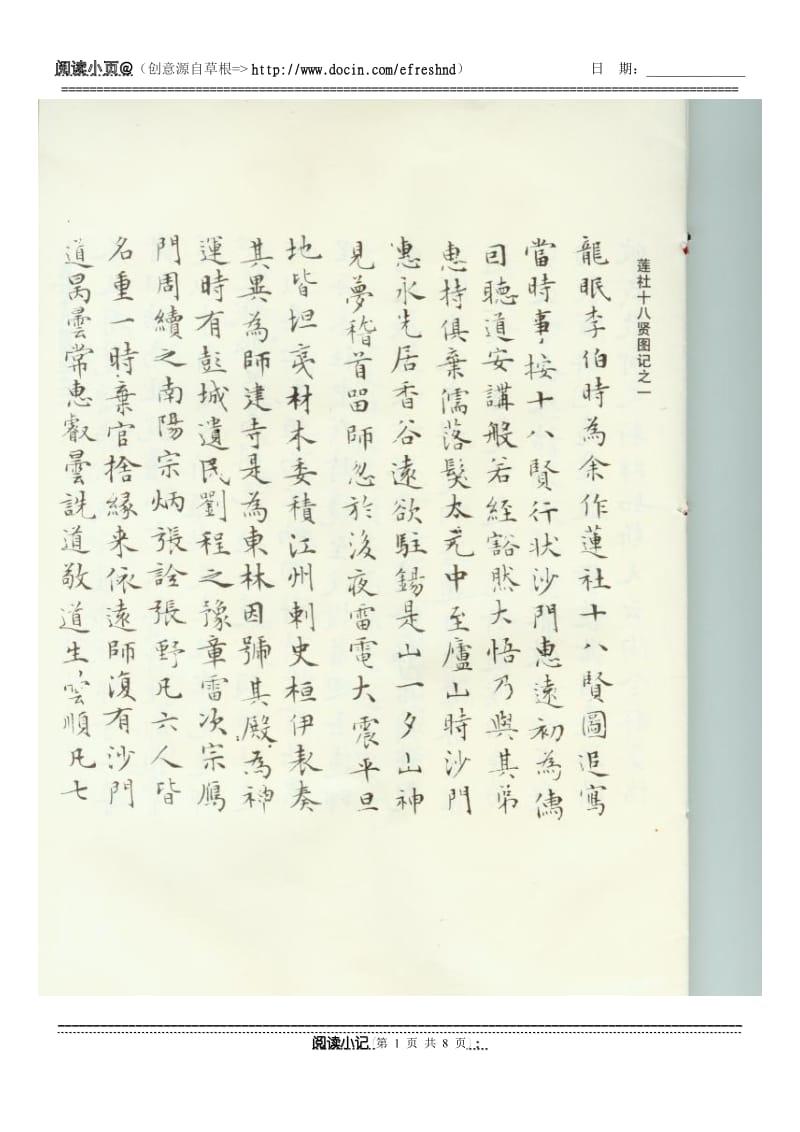 阅读小页@（创意源自草根=> http://www.docin.com/efreshnd） 日 期：____________
莲社十八贤图记之一
龍眠李伯時為余作蓮社十八賢圖追寫
當時事按十八賢行狀沙門惠遠初為儒
因聽道安講般若經豁然大悟乃與其弟
惠持俱棄儒落髮太元中至廬山時沙門
惠永先居香谷遠欲駐錫是山一夕山神
見夢稽首留師忽於後夜雷電大震平旦
地皆坦夷材木委積江州刺史桓伊表奏
其異為師建寺是為東林因號其殿為神
運時有彭城遺民劉程之豫章雷次宗鴈
門周續之南陽宗炳張詮張野凡六人皆
名重一時棄官捨緣来依遠師復有沙門
道昺曇常惠叡曇詵道敬道生曇順凡七
阅读小记(第 1 页 共 8 页)；